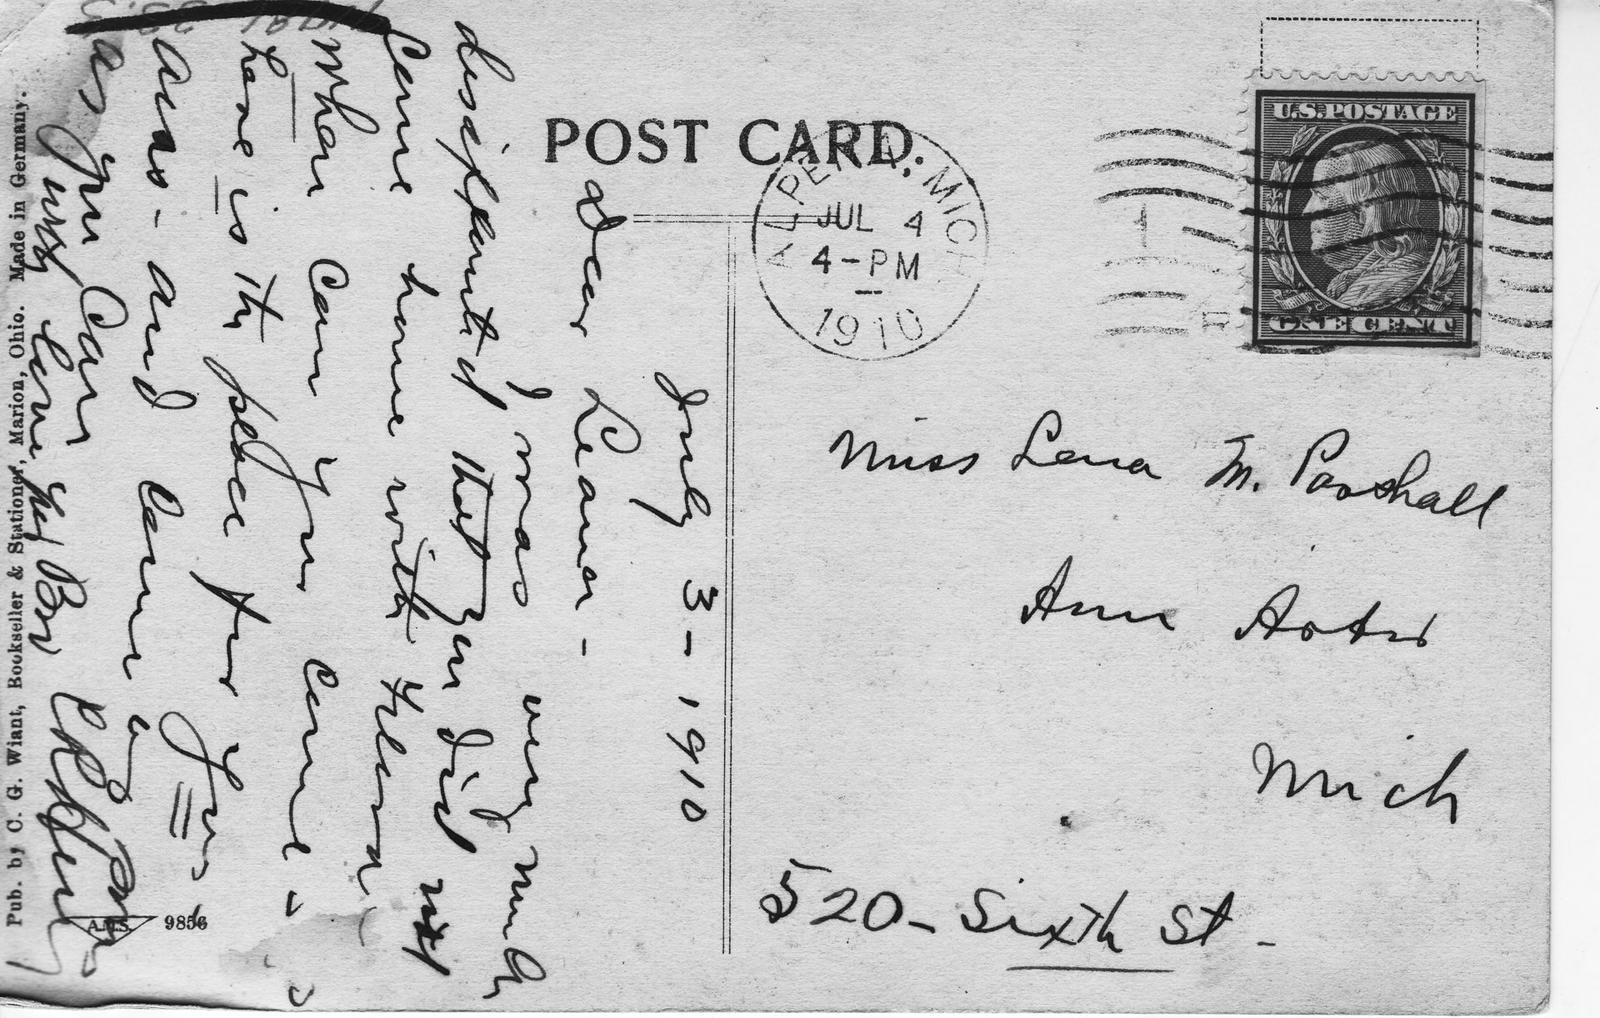 POST CARD.
ALPENA, MICH
JUL 4
4-PM
1910
U.S. POSTAGE
ONE CENT
July 3-1910
Dear Leanor-
I was very much
disappointed that you did not
come home with Helena.
When can you come
here is the place for you
and come as
as you can
with love
Miss Lena M. Parshall
Ann Arbor
Mich
520-Sixth St-
Pub. by C. G. Wiant, Bookseller & Stationer, Marion, Ohio. Made in Germany.
9856